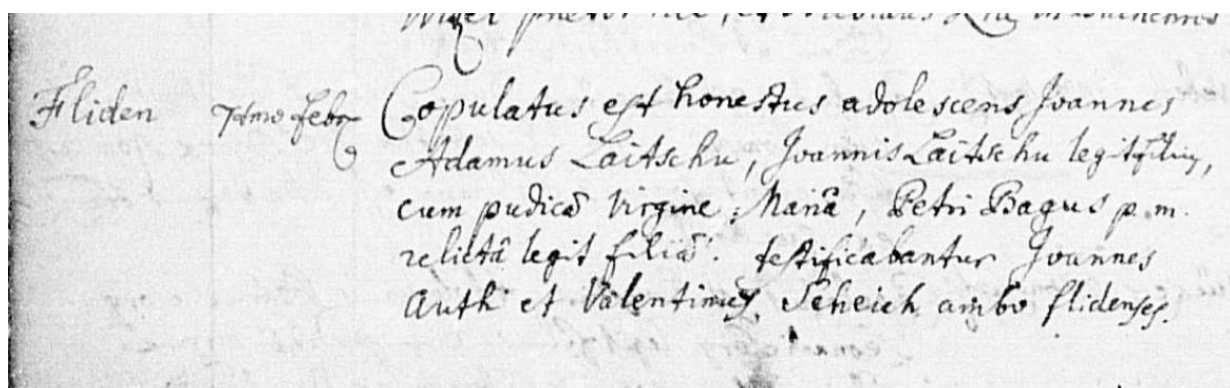 Fliden 7timo Febr Copulatus est honestus adolescens Joannes
Adamus Laitschu, Joannis Laitschu legit filius,
cum pudicâ virgine Mariâ, Petri Bagus p.m.
relictâ legit filiâ. testificabantur Joannes
Auth et Valentinus Scheich ambo flidenses.